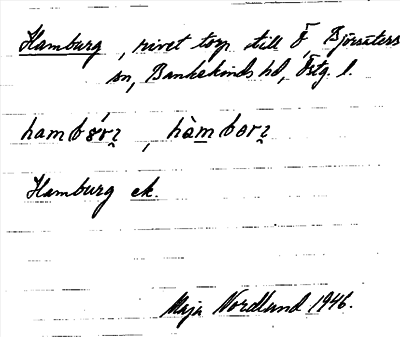 Hamburg, rivet torp till Ö, Björsäters
sn, Bankekinds hd, Östg. l.
hambór̨z, hàmborz
Hamburg ek.
Maja Nordlund 1946.